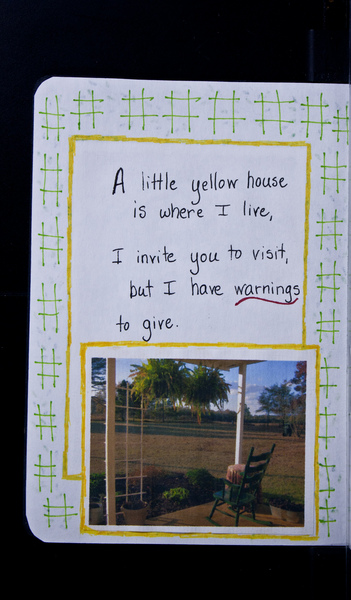 A little yellow house
is where I live,
I invite you to visit,
but I have warnings
to give.